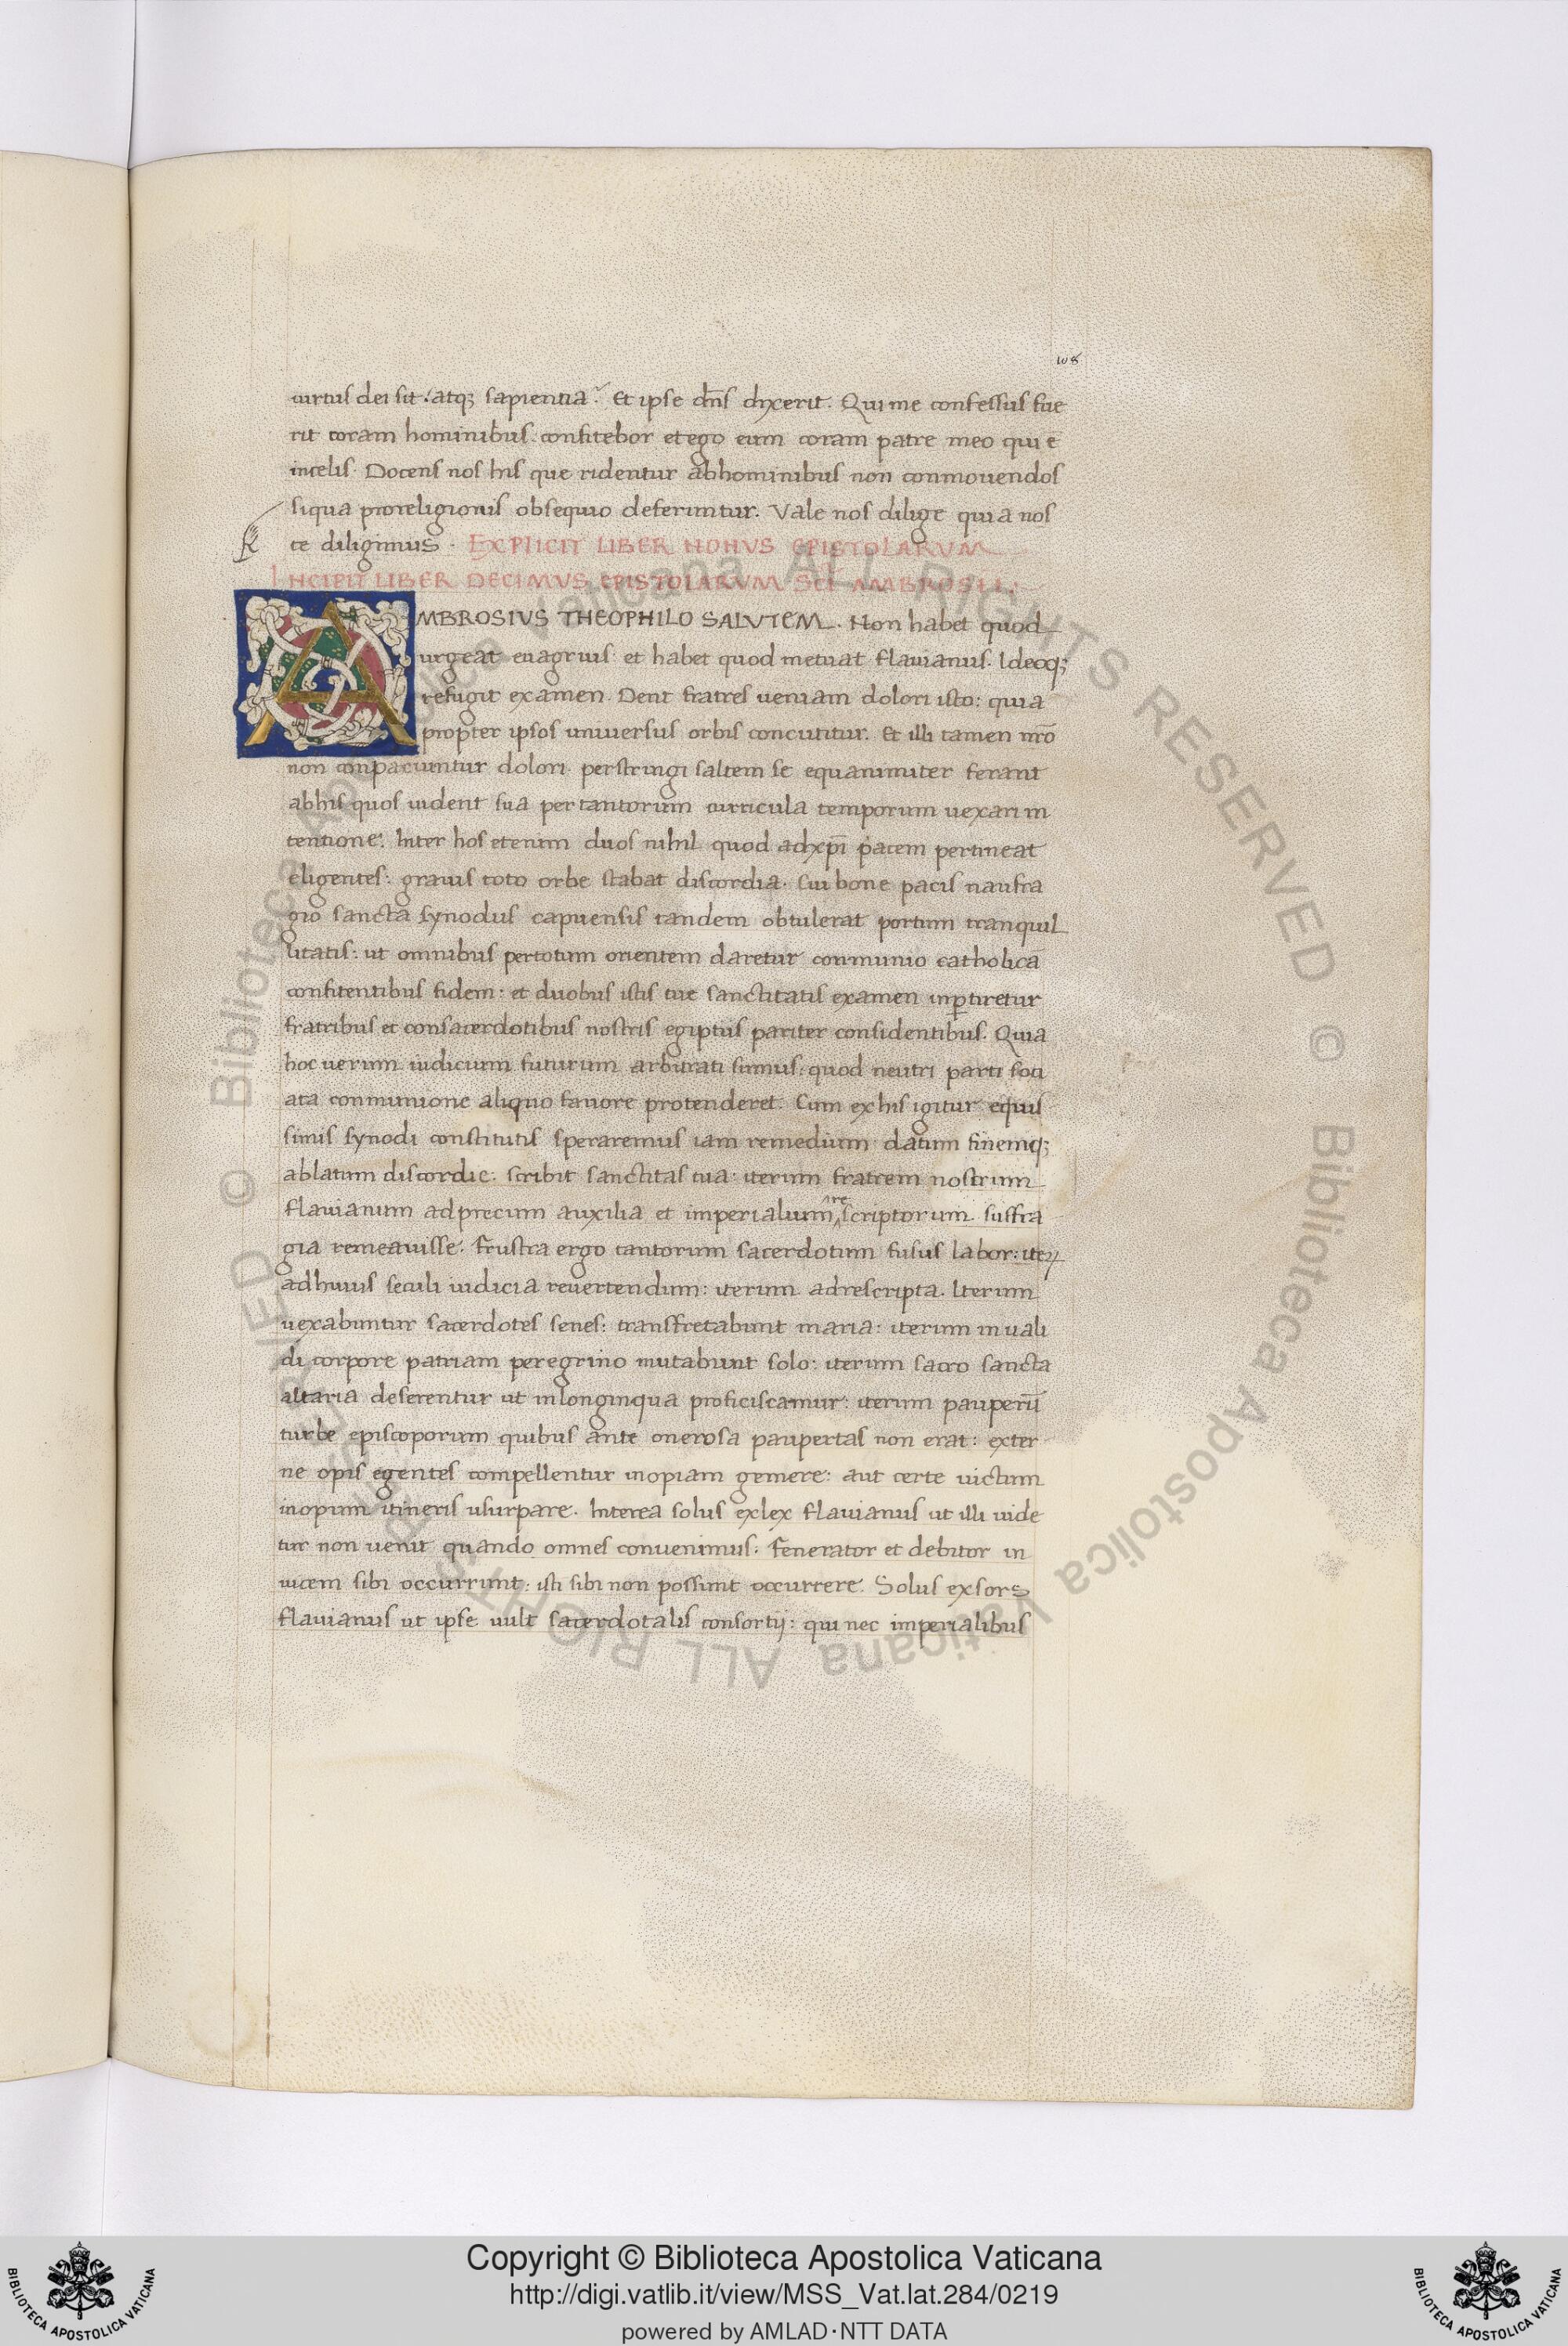 108
uirtus dei sit. atq; sapientia? Et ipse dñs dixerit. Qui me confessus fue
rit coram hominibus: confitebor et ego eum coram patre meo qui ē
in celis. Docens nos his que ridentur ab hominibus non conmouendos
si qua pro religionis obsequio deferuntur. Vale nos dilige quia nos
te diligimus. EXPLICIT LIBER NONVS EPISTOLARVM
INCIPIT LIBER DECIMVS EPISTOLARVM SCI AMBROSII:
AMBROSIVS THEOPHILO SALVTEM. Non habet quod
urgeat euagrius: et habet quod metuat flauianus. Ideoq;
refugit examen. Dent fratres ueniam dolori isto: quia
propter ipsos uniuersus orbis concutitur. Et illi tamen nr̄o
non conpaciuntur dolori. perstringi saltem se equanimiter ferant
ab his quos uident sua per tantorum curricula temporum uexari in
tentione. Inter hos etenim duos nihil quod ad xp̄i pacem pertineat
eligentes: grauis toto orbe stabat discordia. Cui bone pacis naufra
gio sancta synodus capuensis tandem obtulerat portum tranquil
litatis: ut omnibus per totum orientem daretur conmunio catholicā
confitentibus fidem: et duobus istis tue sanctitatis examen inp̄tiretur
fratribus et consacerdotibus nostris egiptiis pariter considentibus. Quia
hoc uerum iudicium futurum arbitrati simus: quod neutri parti soci
ata conmunione aliquo fauore protenderet. Cum ex his igitur equis
simis synodi constitutis speraremus iam remedium datum finemq;
ablatum discordie. scribit sanctitas tua: iterum fratrem nostrum
flauianum ad precum auxilia et imperialium rescriptorum suffra
gia remeauisse. Frustra ergo tantorum sacerdotum fusus labor: iteꝝ
ad huius seculi iudicia reuertendum: iterum ad rescripta. Iterum
uexabuntur sacerdotes senes: transfretabunt maria: iterum inuali
di corpore patriam peregrino mutabunt solo: iterum sacro sancta
altaria deserentur ut in longinqua proficiscamur: iterum pauperū
turbe episcoporum quibus ante onerosa paupertas non erat: exter
ne opis egentes compellentur inopiam gemere: aut certe uictum
inopum itineris usurpare. Interea solus exlex flauianus ut illi uide
tur non uenit quando omnes conuenimus. Fenerator et debitor in
uicem sibi occurrunt: isti sibi non possunt occurrere. Solus exsors
flauianus ut ipse uult sacerdotalis consortij: qui nec imperialibus
© Biblioteca Apostolica Vaticana ALL RIGHTS RESERVED © Biblioteca Apostolica Vaticana ALL RIGHTS RESERVED
Copyright © Biblioteca Apostolica Vaticana
http://digi.vatlib.it/view/MSS_Vat.lat.284/0219
powered by AMLAD·NTT DATA
BIBLIOTECA APOSTOLICA VATICANA
BIBLIOTECA APOSTOLICA VATICANA